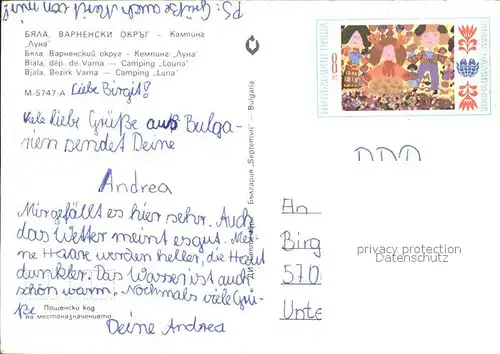 PS: Grüße auch
БЯЛА, ВАРНЕНСКИ ОКРЪГ – Кемпинга
„Луна"
Бяла, Варненский округ – Кемпинг „Луна"
Biala, dép. de Varna – Camping „Louna"
Bjala, Bezirk Varna – Camping „Luna"
М-5747-А
Liebe Birgit!
Viele liebe Grüße aus Bulga-
rien sendet Deine
Andrea
Mir gefällt es hier sehr. Auch
das Wetter meint es gut. Mei-
ne Haare werden heller, die Haut
dunkler. Das Wasser ist auch
schön warm. Nochmals viele Grü-
ße
Deine Andrea
Пощенски код
на местоназначението
България „Септември" – Bulgaria
8
An
Birg
570
Unte
privacy protection
Datenschutz